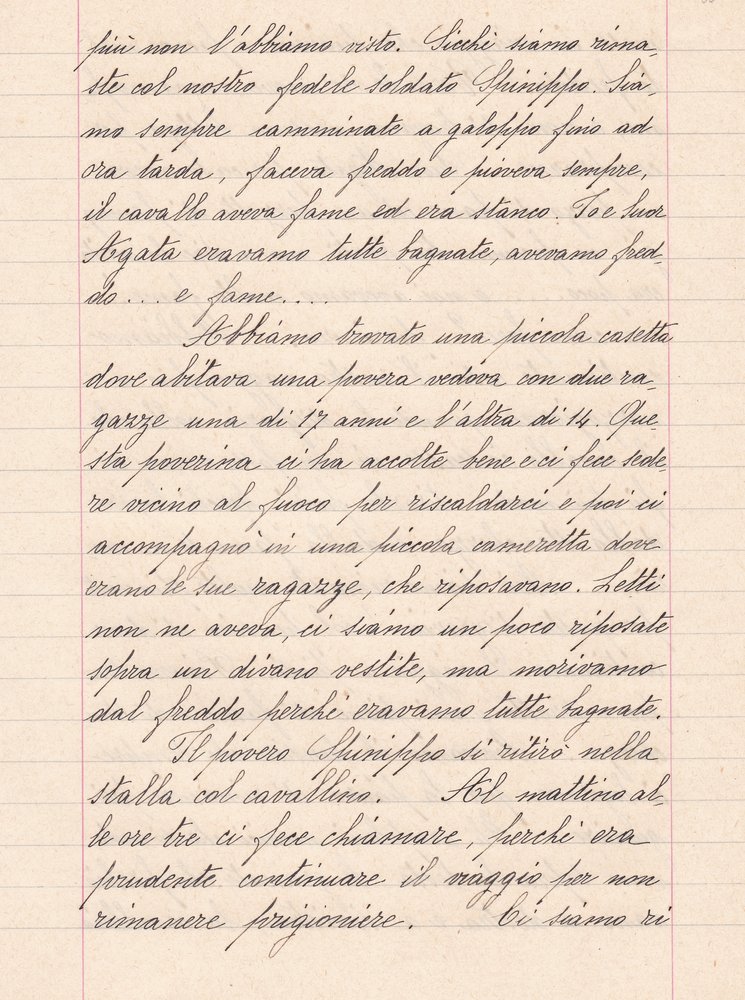 più non l'abbiamo visto. Sicchè siamo rima-
ste col nostro fedele soldato Spinippo. Sia-
mo sempre camminate a galoppo fino ad
ora tarda, faceva freddo e pioveva sempre,
il cavallo aveva fame ed era stanco. Io e Suor
Agata eravamo tutte bagnate, avevamo fred-
do... e fame....
Abbiamo trovato una piccola casetta
dove abitava una povera vedova con due ra-
gazze una di 17 anni e l'altra di 14. Que-
sta poverina ci ha accolte bene e ci fece sede-
re vicino al fuoco per riscaldarci e poi ci
accompagnò in una piccola cameretta dove
erano le sue ragazze, che riposavano. Letti
non ne aveva, ci siamo un poco riposate
sopra un divano vestite, ma morivamo
dal freddo perchè eravamo tutte bagnate.
Il povero Spinippo si ritirò nella
stalla col cavallino. Al mattino al-
le ore tre ci fece chiamare, perchè era
prudente continuare il viaggio per non
rimanere prigioniere. Ci siamo ri